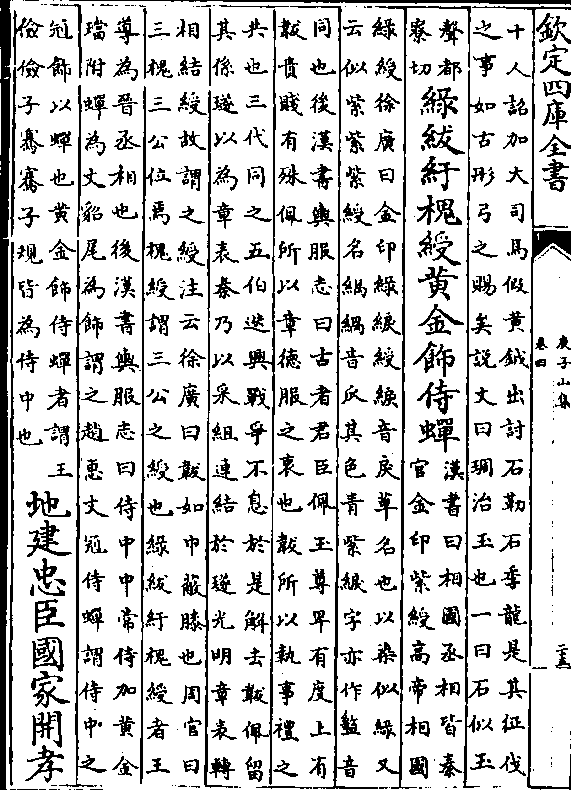 欽定四庫全書
庾子山集
卷四
二十五
十人詔加大司馬假黄鉞出討石勒石季龍是其征伐
之事如古彤弓之賜矣説文曰琱治玉也一曰石似玉
聲都
寮切
緑紱紆槐綬黄金飾侍蟬
漢書曰相國丞相皆秦
官金印紫綬高帝相國
緑綬徐廣曰金印緑綟綬綟音戾草名也以染似緑又
云似紫紫綬名緺緺音瓜其色青紫綟字亦作盭音
同也後漢書輿服志曰古者君臣佩玉尊卑有度上有
韍貴賤有殊佩所以章德服之衷也韍所以執事禮之
共也三代同之五伯迭興戰爭不息於是解去韍佩留
其係璲以為章表秦乃以采組連結於璲光明章表轉
相結綬故謂之綬注云徐廣曰韍如巾蔽膝也周官曰
三槐三公位焉槐綬謂三公之綬也緑紱紆槐綬者王
導為晉丞相也後漢書輿服志曰侍中中常侍加黄金
璫附蟬為文貂尾為飾謂之趙惠文冠侍蟬謂侍中之
冠飾以蟬也黄金飾侍蟬者謂王
儉儉子騫騫子規皆為侍中也
地建忠臣國家開孝